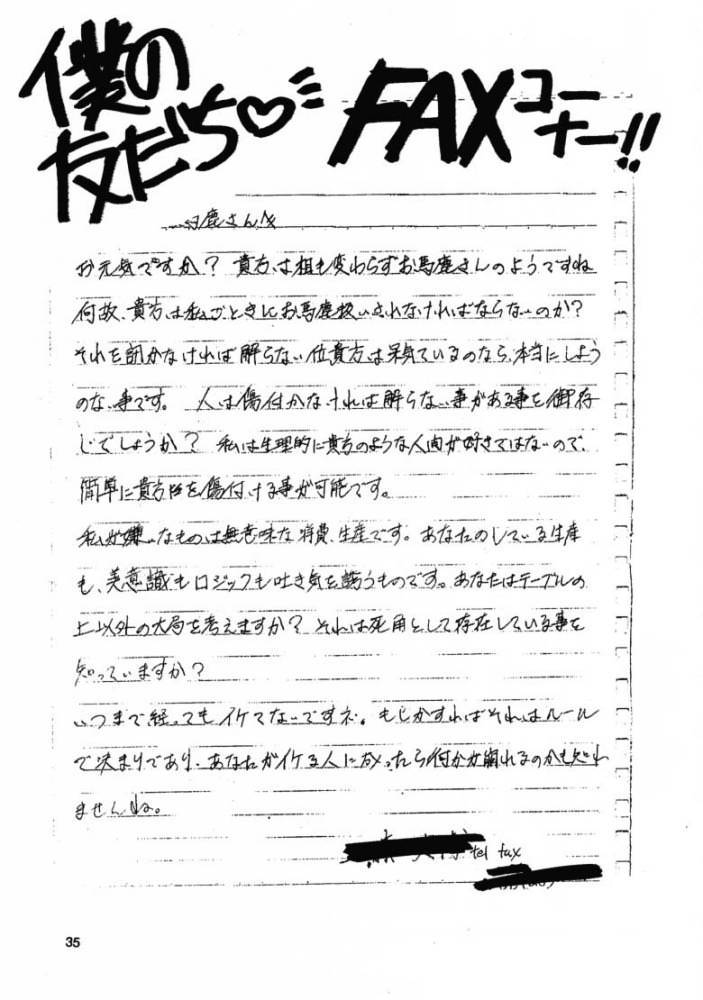 僕の
友だち♡
FAXコーナー!!
馬鹿さんへ
お元気ですか？ 貴方は相も変わらずお馬鹿さんのようですね
何故、貴方は私ごときにお馬鹿扱いされなければならないのか？
それを訊かなければ解らない位貴方は呆けているのなら、本当にしよう
のない事です。 人は傷付かなければ解らない事がある事を御存
じでしょうか？ 私は生理的に貴方のような人間が好きではないので、
簡単に貴方を傷付ける事が可能です。
私が嫌いなものは無意味な消費、生産です。あなたのしている生産
も、美意識もロジックも吐き気を誘うものです。あなたはテーブルの
上以外の大局を考えますか？ それは死角として存在している事を
知っていますか？
いつまで経ってもイケてないですネ。もしかすればそれはルール
で決まりであり、あなたがイケる人になったら何かが崩れるのかも知れ
ませんね。
tel fax
35